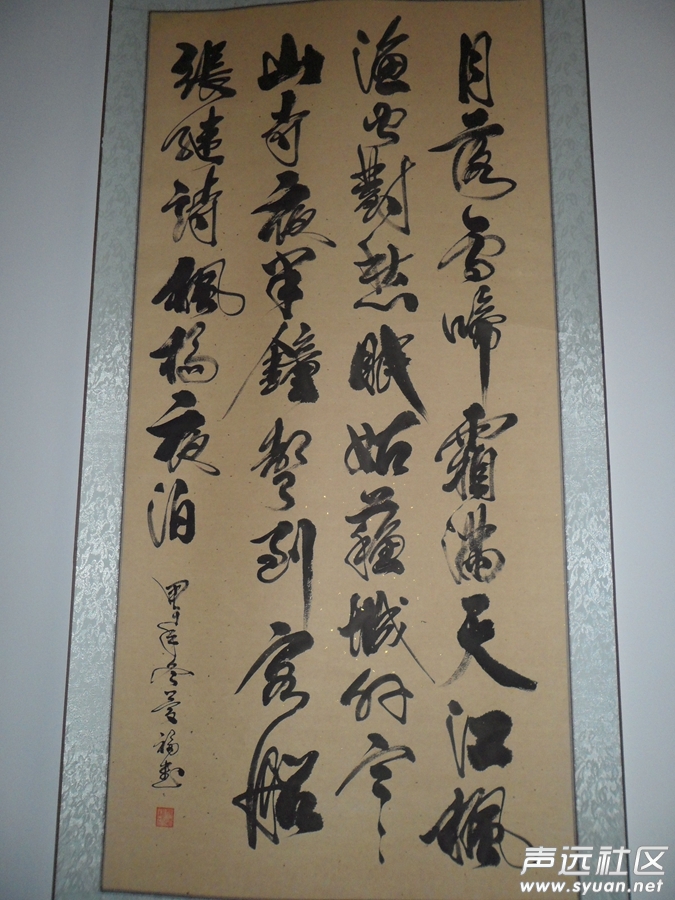 月落烏啼霜滿天江楓
漁火對愁眠姑蘇城外寒
山寺夜半鐘聲到客船
張繼詩楓橋夜泊
甲午年冬福書
声远社区
www.syuan.net